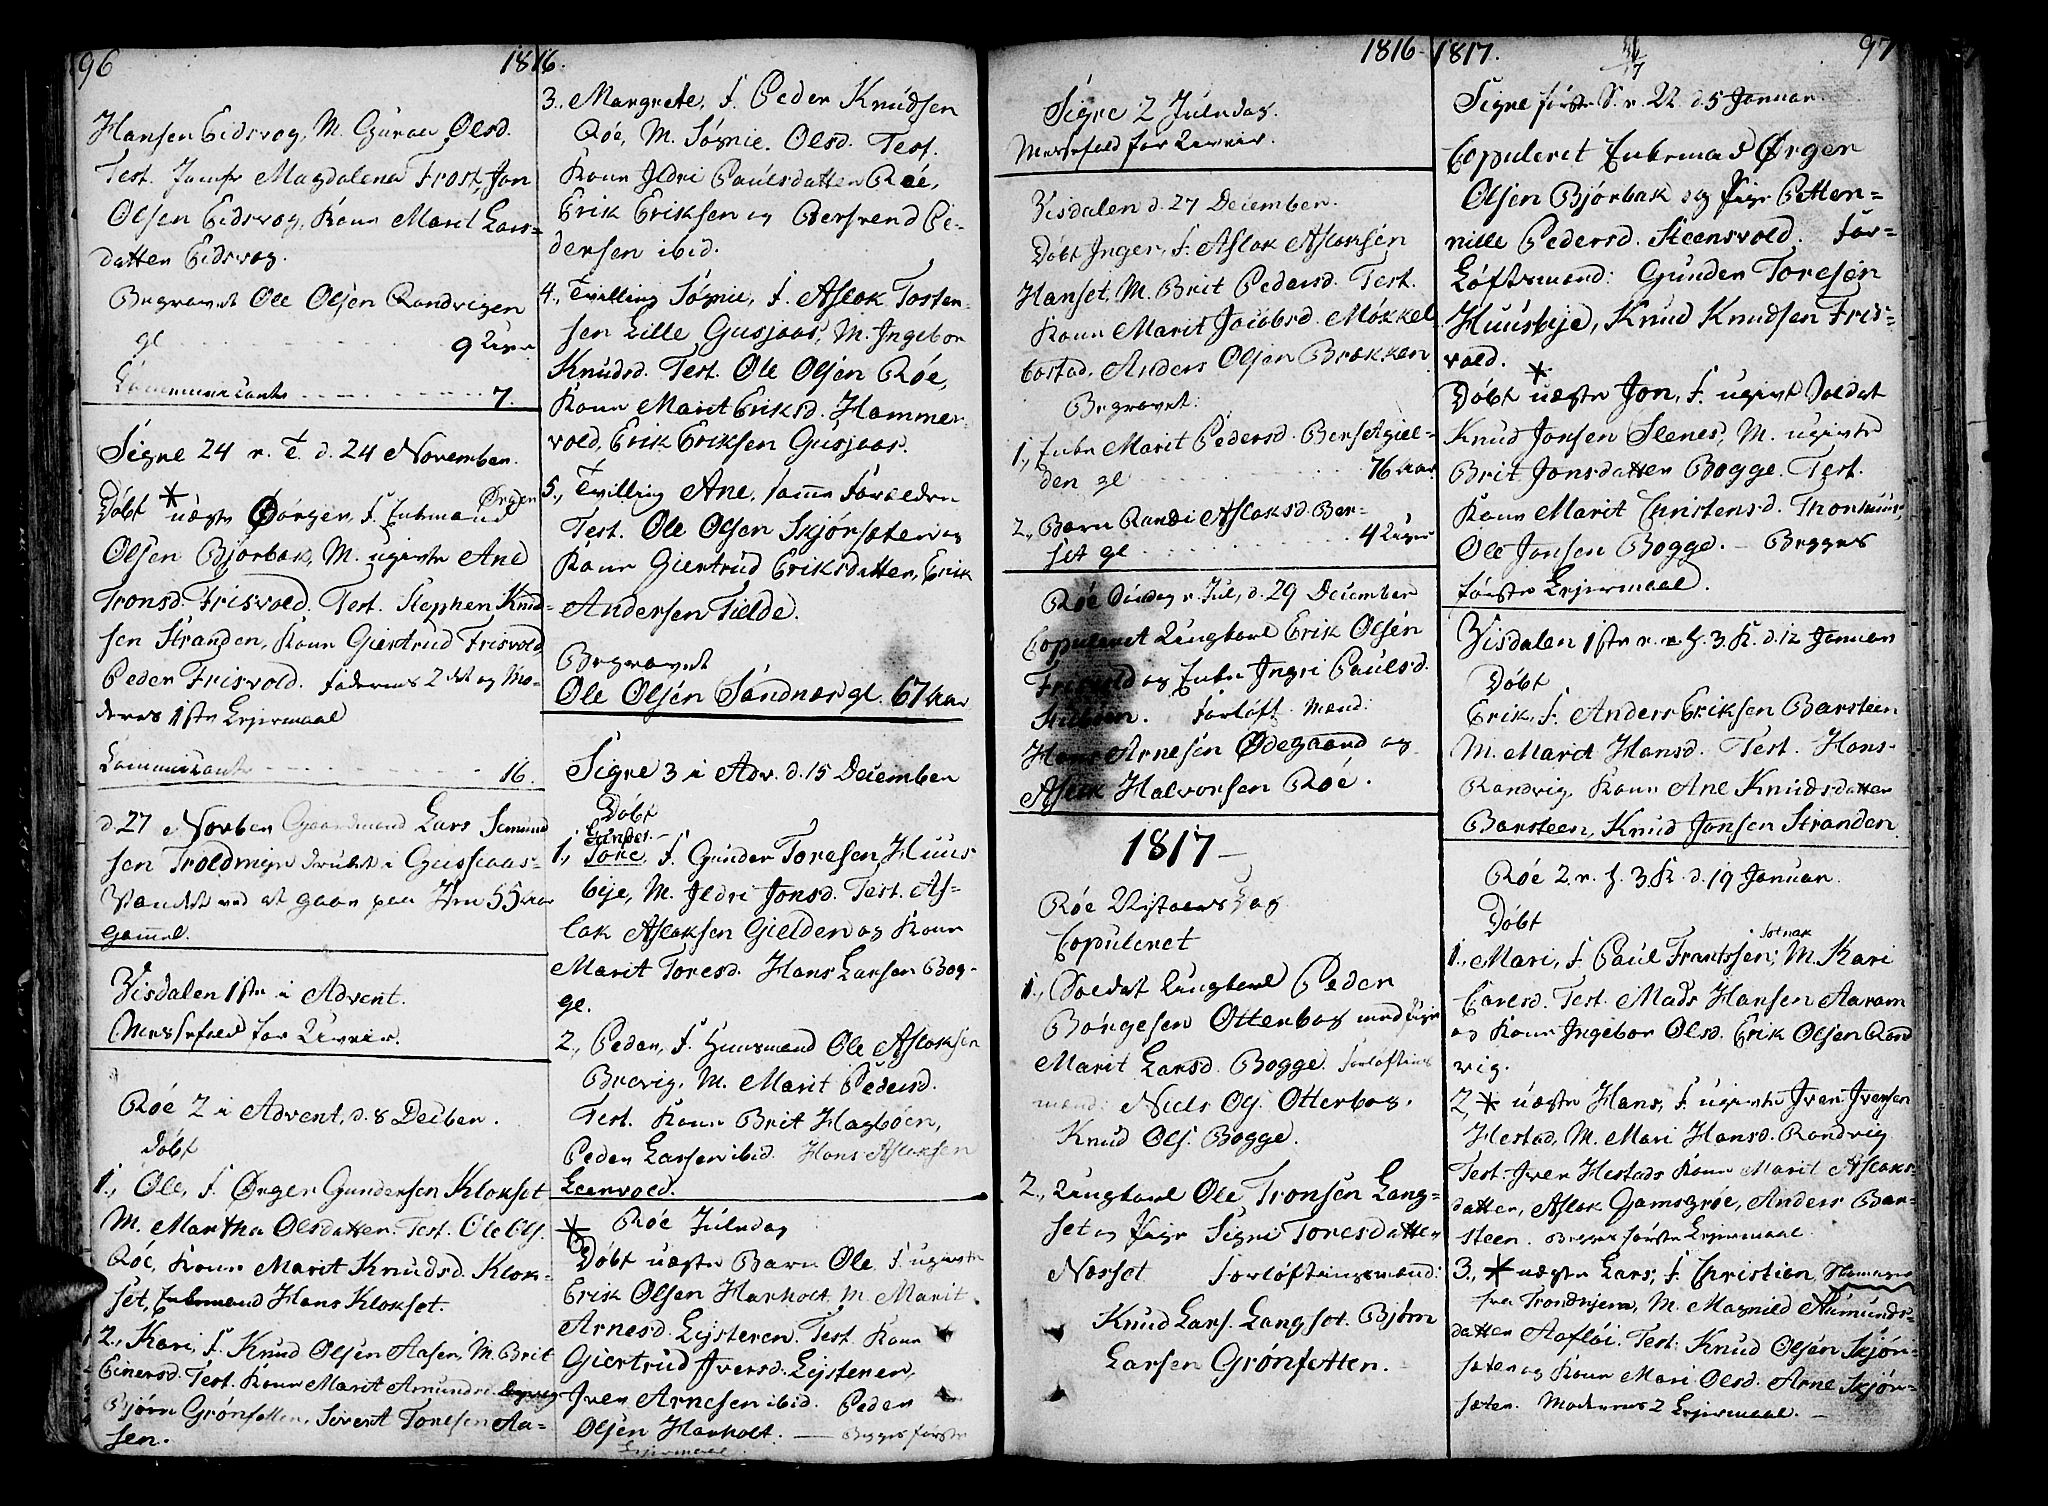 96
1816.
Hansen Eidsvog, M. Guroe Olsd.
Test. Jomfr Magdalena Frost, Jon
Olsen Eidsvog, Kone Marit Lars-
datter Eidsvog.
Begravet Ole Olsen Randvigen
gl 9 Uger
Communicanter 7.
Signe 24 p. T. d. 24 November.
Døbt * uægte Ørgen, F. Enkemand Ørgen
Olsen Bjørbak, M. ugivte Ane
Tronsd. Frisvold. Test. Stephen Knud-
sen Stranden, Kone Giertrud Frisvold,
Peder Frisvold. Faderens 2det og Mo-
deres 1ste Lejermaal
Communicanter 16.
d. 27 Novben Gaardmand Lars
sen Troldmyr druknet i Gusiaas-
Vandet ved at gaae paa Isen 55 Aar
gammel.
Visdalen 1ste i Advent.
Messefald for Uveir.
Røe 2 i Advent, d. 8 Decben.
Døbt
1., Ole, F. Ørger Gundersen Klokset,
M. Martha Olsdatter. Test. Ole Ols.
Røe, Kone Marit Knudsd. Klok-
set, Enkemand Hans Klokset.
2., Kari, F. Knud Olsen Aasen, M. Brit
Einersd. Test. Kone Marit Amundsd.
Bjørn Grønfetten, Sivert Toresen Aa-
sen.
3., Margrete, F. Peder Knudsen
Røe, M. Søgnie. Olsd. Test.
Kone Ildri Paulsdatter Røe,
Erik Eriksen og Bersvend Pe-
dersen ibid.
4., Tvilling Søgnie, F. Aslak Tosten-
sen Lille Gusjaas, M. Ingebor
Knudsd. Test. Ole Olsen Røe,
Kone Marit Eriksd. Hammer-
vold, Erik Eriksen Gusjaas.
5., Tvilling Ane, samme Forældre
Test. Ole Olsen Skjørsæter og
Kone Giertrud Eriksdatter, Erik
Andersen Tielde.
Begravet
Ole Olsen Sandnær gl. 67 Aar
Signe 3 i Adv. d. 15 December
Døbt
Gunder
1., Tore, F. Gunder Toresen Huus-
bye, M. Ildri Jonsd. Test. As-
lak Aslaksen Gielden og Kone
Marit Toresd. Hans Larsen Bog-
ge.
2., Peder, F. Huusmand Ole Aslaksen
Brevig, M. Marit Pedersd.
Test. Kone Brit Hagbøen,
Peder Larsen ibid. Hans Aslaksen
Leervold.
* Røe Juledag
Døbt uægte Barn Ole, F. ugivte
Erik Olsen Harholt, M. Marit
Arnesd. Lejsteren. Test. Kone
Giertrud Iversd. Lejsteren,
Iver Arnesen ibid. Peder
Olsen Harholt. — Begges første
Lejermaal.
1816
Signe 2 Juledag.
Messefald for Uveir.
Visdalen d. 27 December.
Døbt Inger, F. Aslak Aslaksen
Hanset, M. Brit Pedersd. Test.
Kone Marit Jacobsd. Møkkel
bostad, Anders Olsen Brækken
Begravet:
1., Enke Marit Pedersd. Bersetgiel-
den gl 76 Aar
2., Barn Randi Aslaksd. Ber-
set gl 4 Uger
Røe Søndag e. Jul, d. 29 December
Copuleret Ungkarl Erik Olsen
Frisvold og Enke Ingri Paulsd.
Forløft. Mænd:
Hans Arnesen Ødegaard og
Aslak Halvorsen Røe.
1817
Røe Nytaars Dag
Copuleret
1., Soldat Ungkarl Peder
Børgesen Otterbog med Pige
Marit Larsd. Bogge. Forløftnings
mænd: Niels Ols. Otterbog.
Knud Ols. Bogge.
2., Ungkarl Ole Tronsen Lang-
set og Pige Signe Toresdatter
Nærset Forløftningsmænd:
Knud Lars. Langset. Bjørn
Larsen Grønfetten.
1817.
97
Signe første S. e. N. d. 5 Januar.
Copuleret Enkemand Ørgen
Olsen Bjørbak og Pige Petter-
nille Pedersd. Steensvold. For-
Løftsmænd: Gunder Toresen
Huusbye, Knud Knudsen Fris-
vold.
Døbt * uægte Jon, F. ugivt Soldat
Knud Jonsen Slenes, M. ugivte
Brit Jonsdatter Bogge. Test.
Kone Marit Christensd. Thorhuus,
Ole Jonsen Bogge. — Begges
første Lejermaal.
Visdalen 1ste e. H. 3. K. d. 12 Januar
Døbt
Erik, F. Anders Eriksen Barsteen
M. Marit Hansd. Test. Hans
Randvig, Kone Ane Knudsdatter
Barsteen, Knud Jonsen Stranden
Røe 2. e. H. 3. K. d. 19 Januar.
Døbt
1., Mari, F. Paul Frantssen, M. Kari
Carlsd. Test. Mads Hansen Aaram
og Kone Ingebor Olsd. Erik Olsen Rand
vig.
2, * uægte Hans, F. ugivte Iver Iversen
Hestad, M. Mari Hansd. Randvig
Test. Iver Hestads Kone Marit Aslaks-
datter, Aslak Gamsgrøe, Anders Bar-
steen. Begges første Lejermaal.
3., * uægte Lars, F. Christien
fra Trondhjem, M. Magnild Aamunds-
datter Aafløi. Test. Knud Olsen Skjør-
sæter og Kone Mari Olsd. Arne Skjør-
sæter. Moderens 2 Lejermaal. —